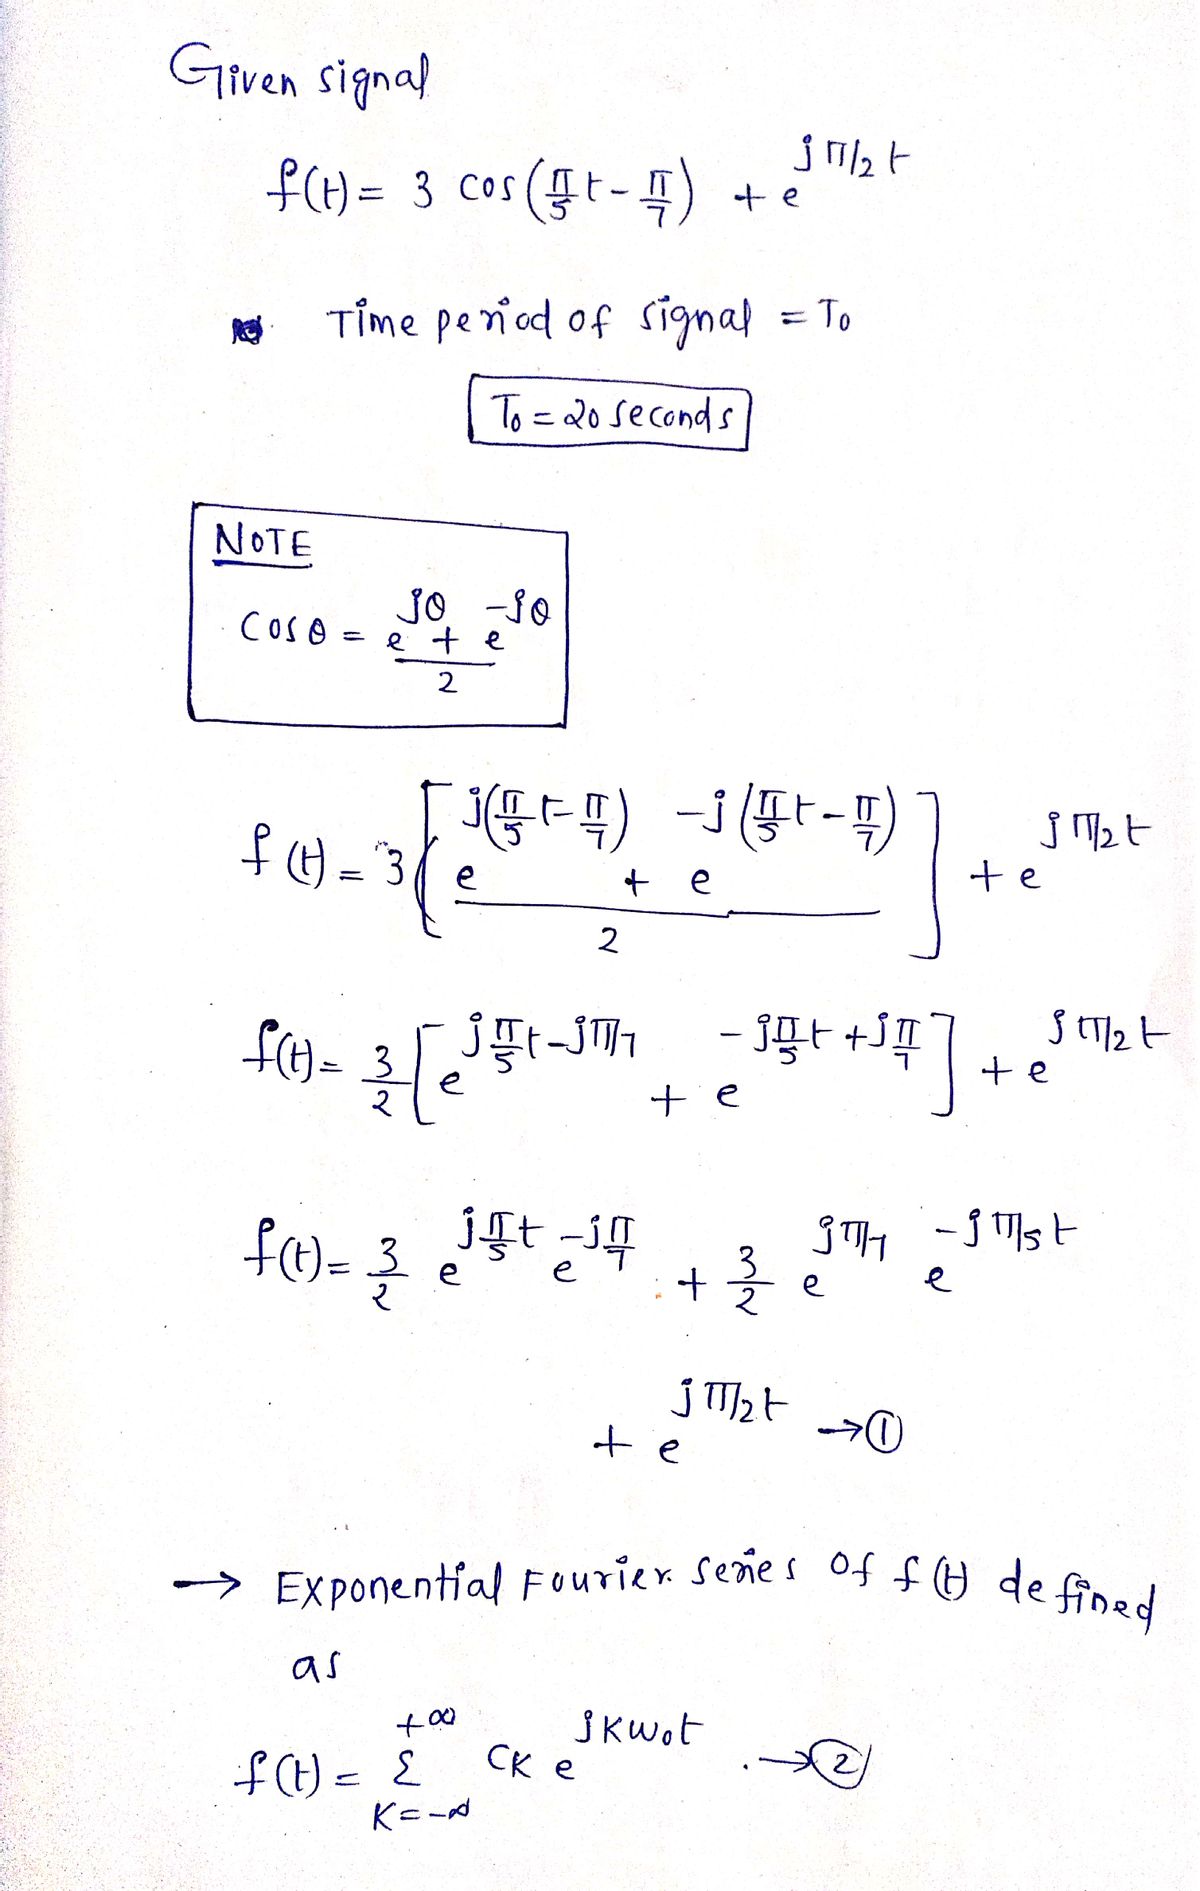 Given signal
f(t) = 3 cos(π/5 t - π/7) + e^{jπ/2 t}
Time period of signal = T0
T0 = 20 seconds
NOTE
cosθ = (e^{jθ} + e^{-jθ})/2
f(t) = 3[(e^{j(π/5 t - π/7)} + e^{-j(π/5 t - π/7)})/2] + e^{jπ/2 t}
f(t) = 3/2 [e^{jπ/5 t - jπ/7} + e^{-jπ/5 t + jπ/7}] + e^{jπ/2 t}
f(t) = 3/2 e^{jπ/5 t} e^{-jπ/7} + 3/2 e^{jπ/7} e^{-jπ/5 t}
+ e^{jπ/2 t} → ①
→ Exponential Fourier series of f(t) defined
as
f(t) = Σ_{K=-∞}^{+∞} CK e^{jKω0t} → ②